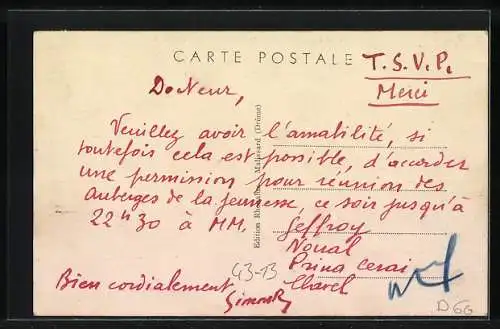 CARTE POSTALE
T.S.V.P.
Merci
Docteur,
Veuillez avoir l'amabilité, si
toutefois cela est possible, d'accorder
une permission pour réunion des
Auberges de la jeunesse, ce soir jusqu'à
22h30 à MM. Geffroy
Noual
Prina Cerai
Chavel
Bien cordialement
43-13
D66
Edition Mallavard (Drôme)